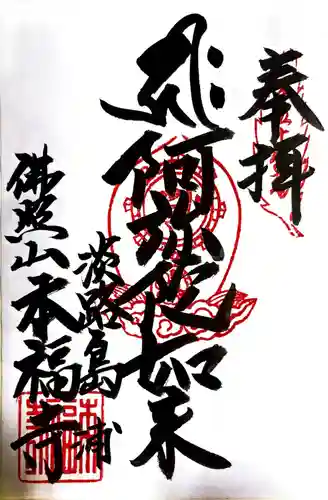 奉拝
阿弥陀如来
淡路島浦
佛照山本福寺